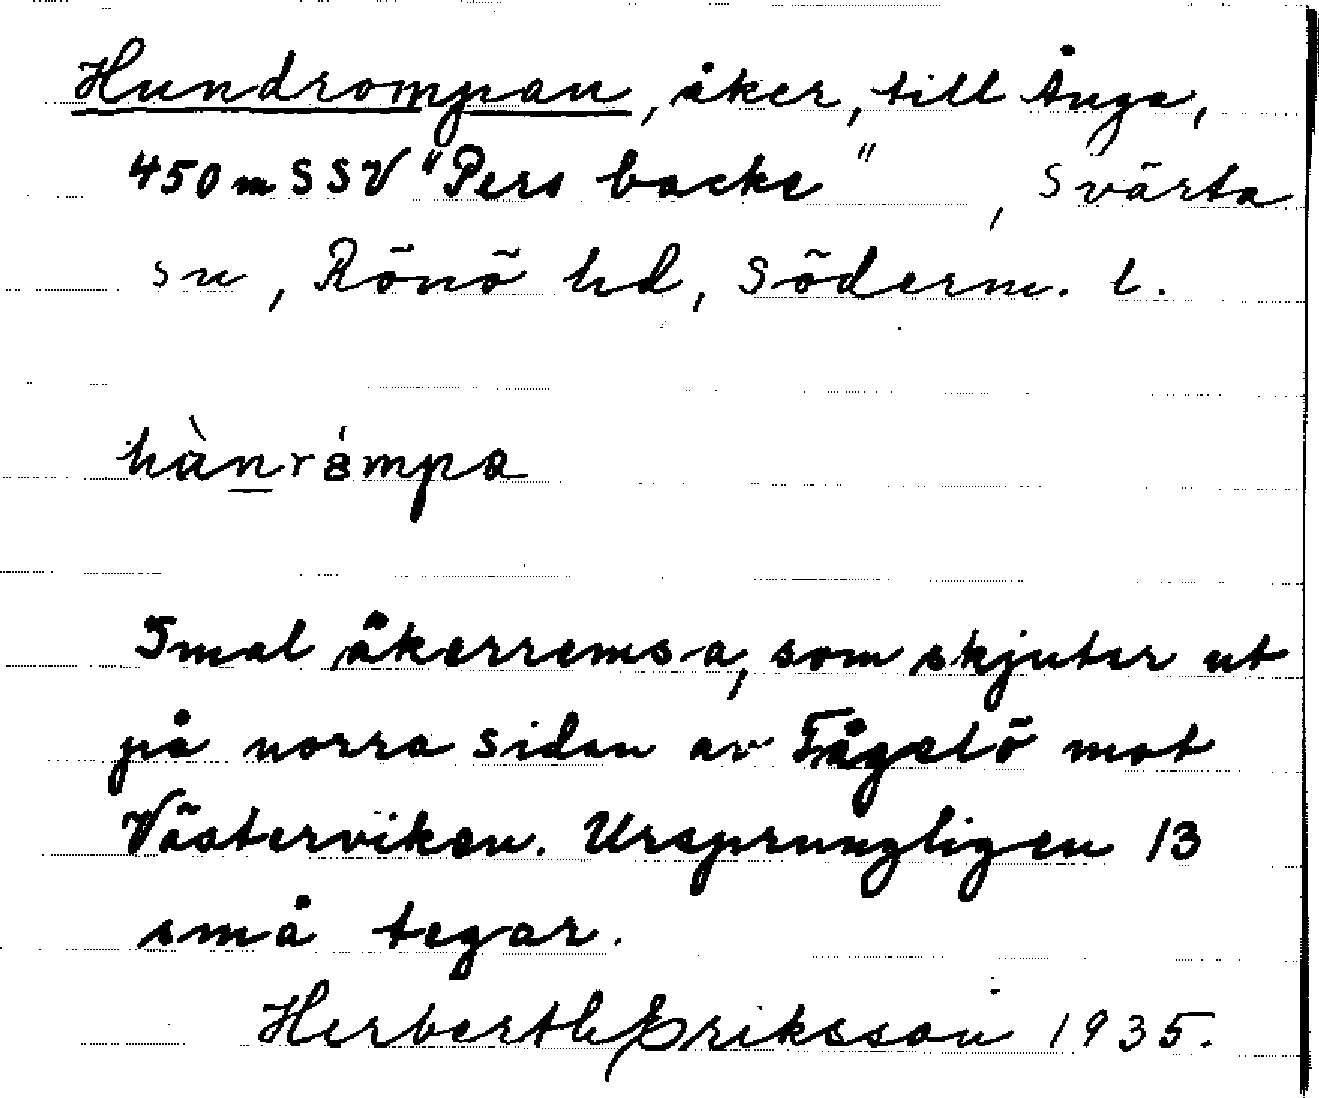 Hundrompan, åker, till Ånga,
450 m SSV "Pers backe", Svärta
sn, Rönö hd, Söderm. l.
Smal åkerremsa, som skjuter ut
på norra sidan av Fågelö mot
Västerviken. Ursprungligen 13
små tegar.
Herbert Eriksson 1935.